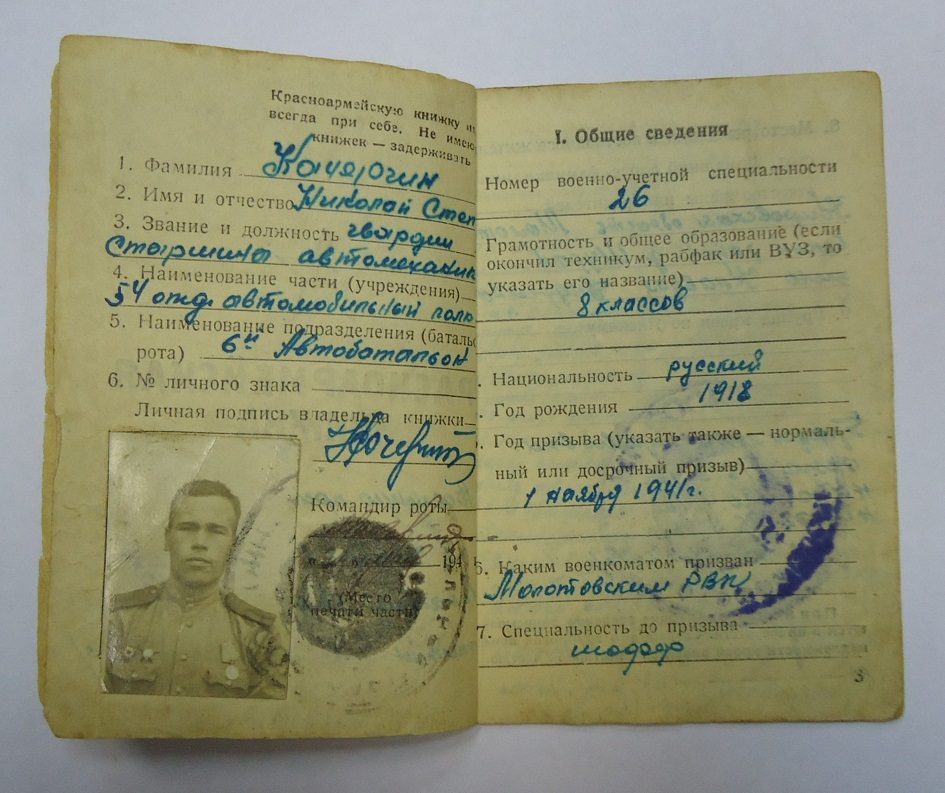 Красноармейскую книжку
всегда при себе. Не
книжек — задерживать
1. Фамилия Качергин
2. Имя и отчество Николай Степ
3. Звание и должность гвардии
старшина автомеханик
4. Наименование части (учреждения)
54 отд. автомобильный полк
5. Наименование подразделения (баталь
рота) 6й Автобатальон
6. № личного знака
Личная подпись владельца книжки
Командир роты
194
(Место
печати части)
I. Общие сведения
Номер военно-учетной специальности
26
Грамотность и общее образование (если
окончил техникум, рабфак или ВУЗ, то
указать его название)
8 классов
. Национальность русский
. Год рождения 1918
. Год призыва (указать также — нормаль-
ный или досрочный призыв)
1 ноября 1941г.
6. Каким военкоматом призван
Молотовским РВК
7. Специальность до призыва
шофер
3